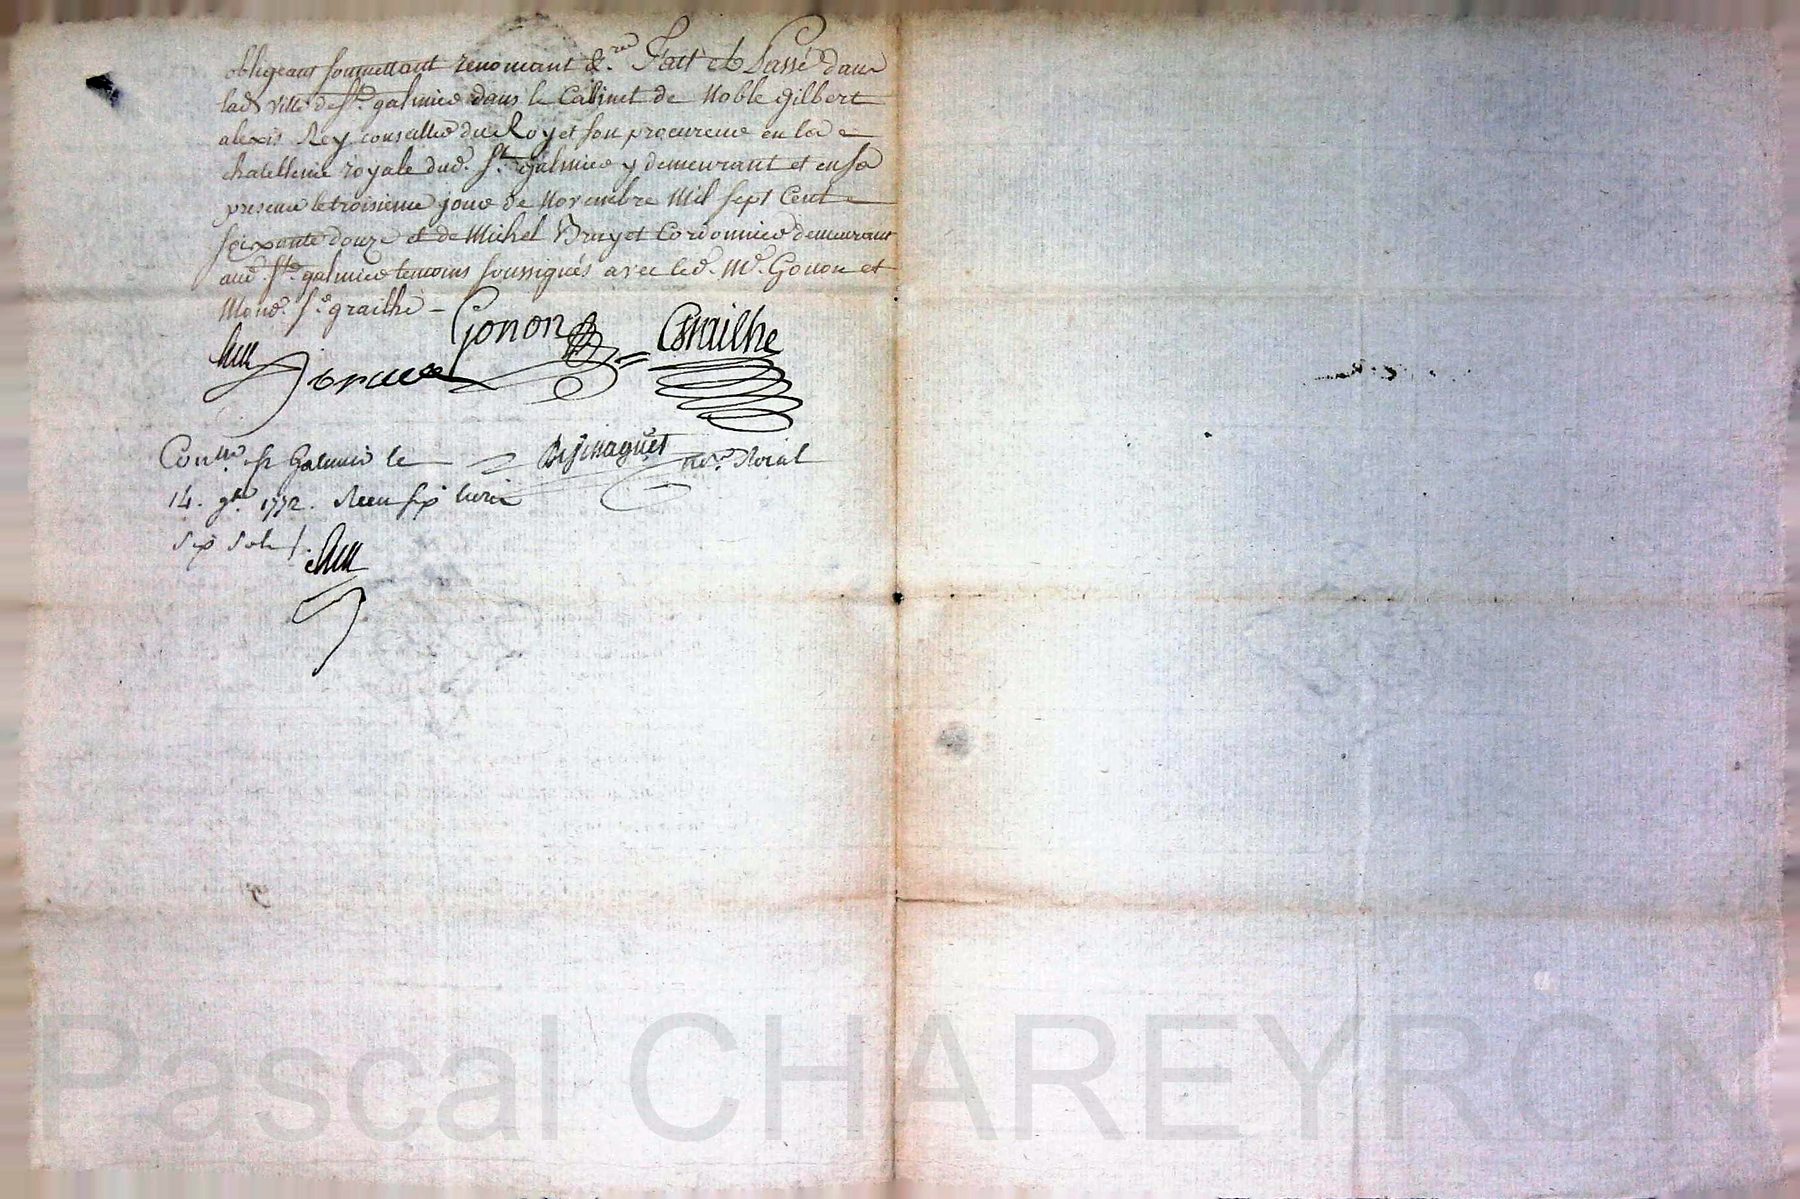 obligeant soumettant renonçant &.ra Fait et Passé dans
lad ville de St. galmier dans le Cabinet de Noble gilbert
alexis Rey conseiller du Roy et son procureur en la
chatellenie royale dud. St. Galmier y demeurant et en sa
presence le troisieme jour de Novembre Mil sept Cent
soixante douze et de Michel Bruyet Cordonnier demeurant
aud. St. galmier temoins soussignés avec led. Md. Gonon et
Mond. Sr. grailhe -
Gonon Grailhe
Conllé. St Galmier le
not.re Roial
14. 9bre 1772. Reçu six livres
six sols
Pascal CHAREYRON